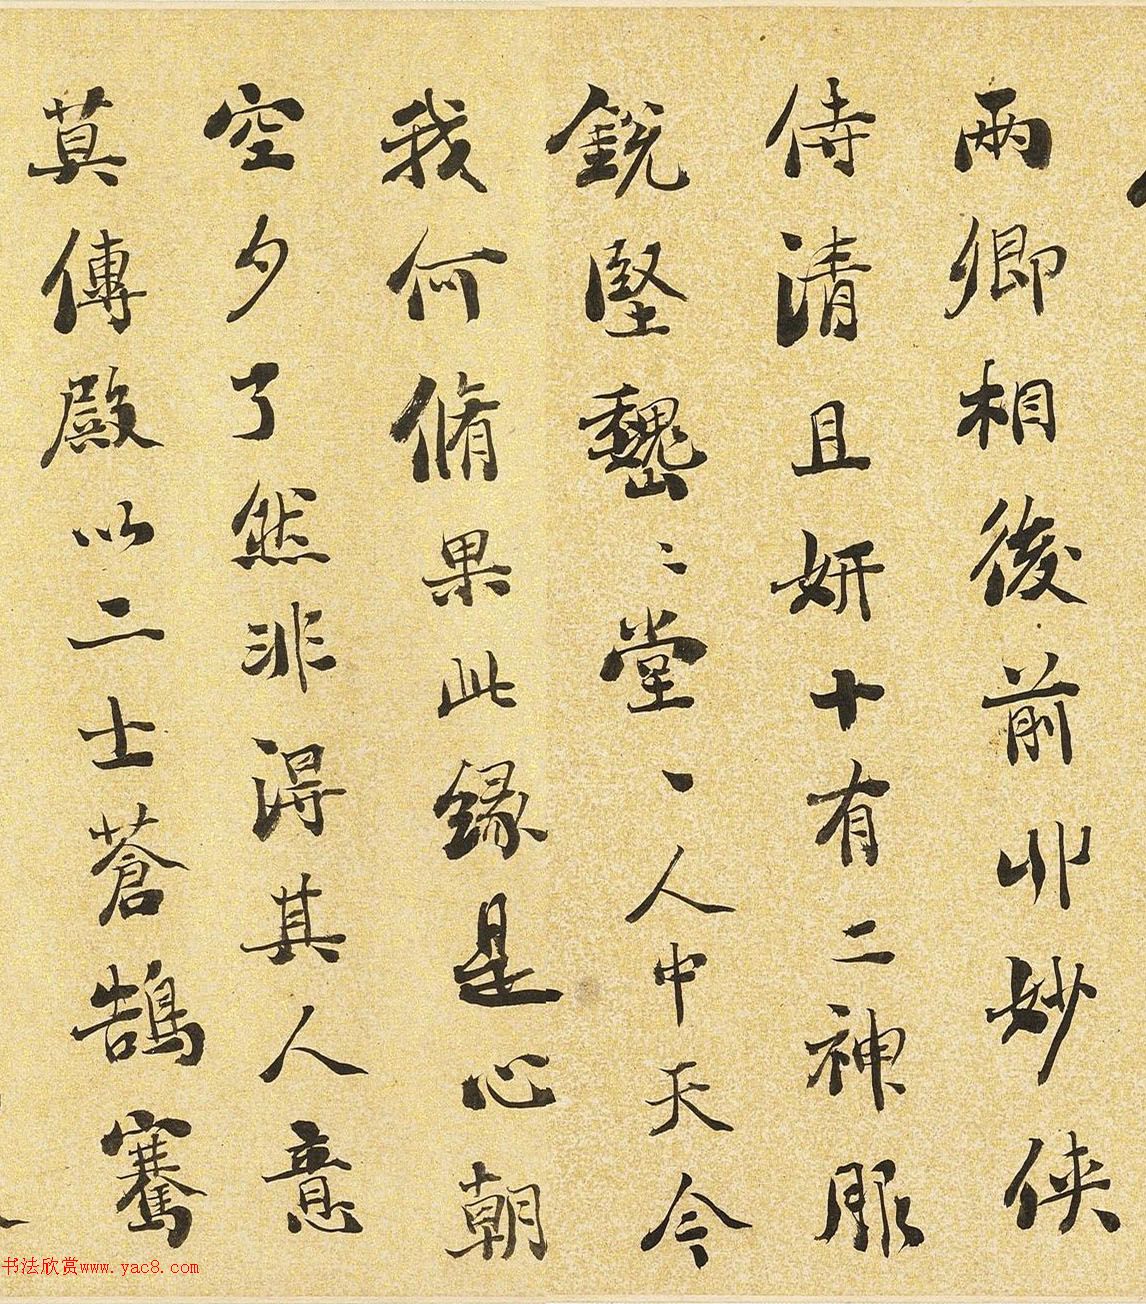 兩卿相後前丱妙俠
侍清且妍十有二神服
銳堅巍〻堂〻人中天今
我何脩果此緣是心朝
空夕了然非得其人意
莫傳殿以二士蒼鵠騫
书法欣赏www.yac8.com